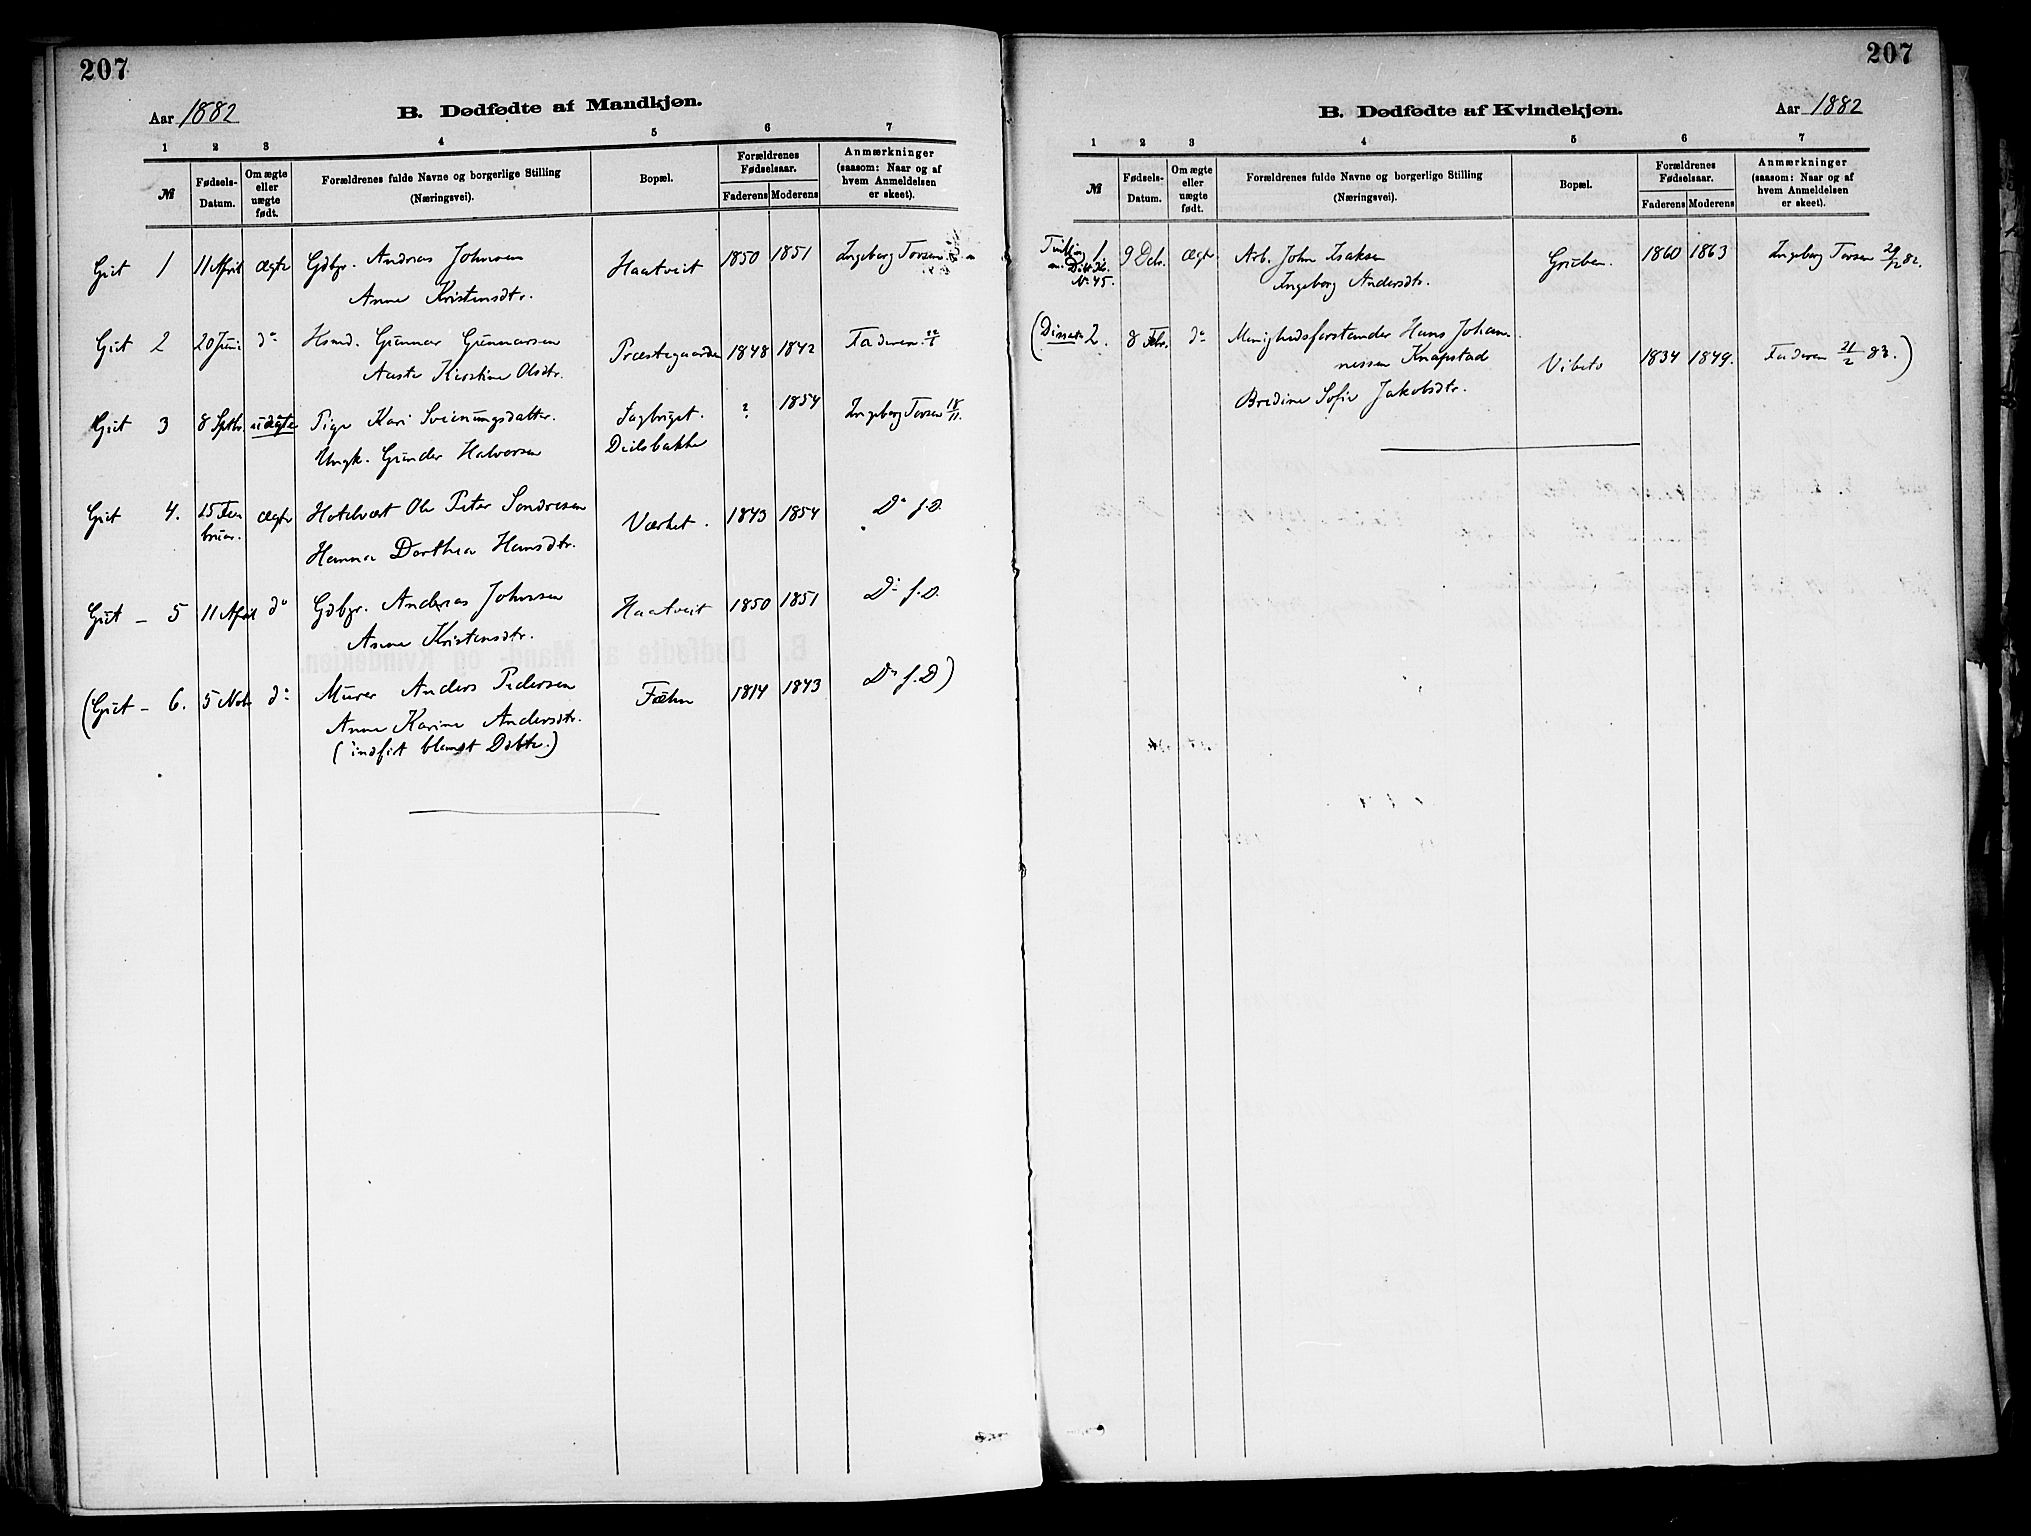 207
Aar 1882
B. Dødfødte af Mandkjøn.
1 2 3 4 5 6 7
№ Fødsels-Datum. Om ægte eller uægte født. Forældrenes fulde Navne og borgerlige Stilling (Næringsvei). Bopæl. Forældrenes Fødselsaar. Faderens Moderens Anmærkninger (saasom: Naar og af hvem Anmeldelsen er skeet).
Gut 1 11 April ægte Gdbgr. Andreas Johnsen Haatveit 1850 1851 Ingeborg Torsen
Anne Kristensdtr.
Gut 2 20 Juni do Hsmd. Gunnar Gunnarsen Præstegaarden 1848 1842 Faderen
Aaste Kirstine Olsdtr.
Gut 3 8 Sptbr. uægte Pige Kari Sveinungsdatter. Sagbruget. ? 1854 Ingeborg Torsen 18/11.
Ungk. Gunder Halvorsen Dielsbakke
Gut 4. 15 Februar. ægte Hotelvært Ole Peter Sondresen Værket. 1843 1854 Do f. D.
Hanna Dorthea Hansdtr.
Gut - 5 11 April do Gdbgr. Andreas Johnsen Haatveit 1850 1851 Do f. D.
Anne Kristensdtr.
(Gut - 6. 5 Nov do Murer Anders Pedersen Fæhn 1814 1843 Do f. D)
Anne Karine Andersdtr.
(indført blandt Døbte.)
207
B. Dødfødte af Kvindekjøn.
Aar 1882
1 2 3 4 5 6 7
№ Fødsels-Datum. Om ægte eller uægte født. Forældrenes fulde Navne og borgerlige Stilling (Næringsvei). Bopæl. Forældrenes Fødselsaar. Faderens Moderens Anmærkninger (saasom: Naar og af hvem Anmeldelsen er skeet).
Tvilling 1. 9 Dcb. ægte Arb. John Isaksen Gruben. 1860 1863 Ingeborg Torsen 29/12 82.
No 45. Ingeborg Andersdtr.
(Dissent. 2. 8 Febr. do Menighedsforstander Hans Johannessen Knapstad Vibeto 1834 1849. Faderen 21/2 83.)
Bredine Sofie Jakobsdtr.